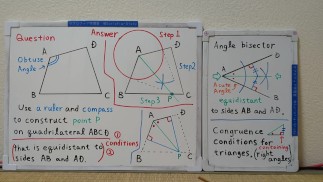 Question
Answer
Step1
A
D
Obtuse
Angle
B
C
A
D
Step2
B
Step3
P
C
Use a ruler and compass
to construct point P
on quadrilateral ABCD
that is equidistant to
sides AB and AD.
① 
② conditions
A
D
B
P
C
Angle bisector
A
B
D
Acute
Angle
equidistant
to sides AB and AD.
Congruence
conditions for
triangles,
(containing
right angles)